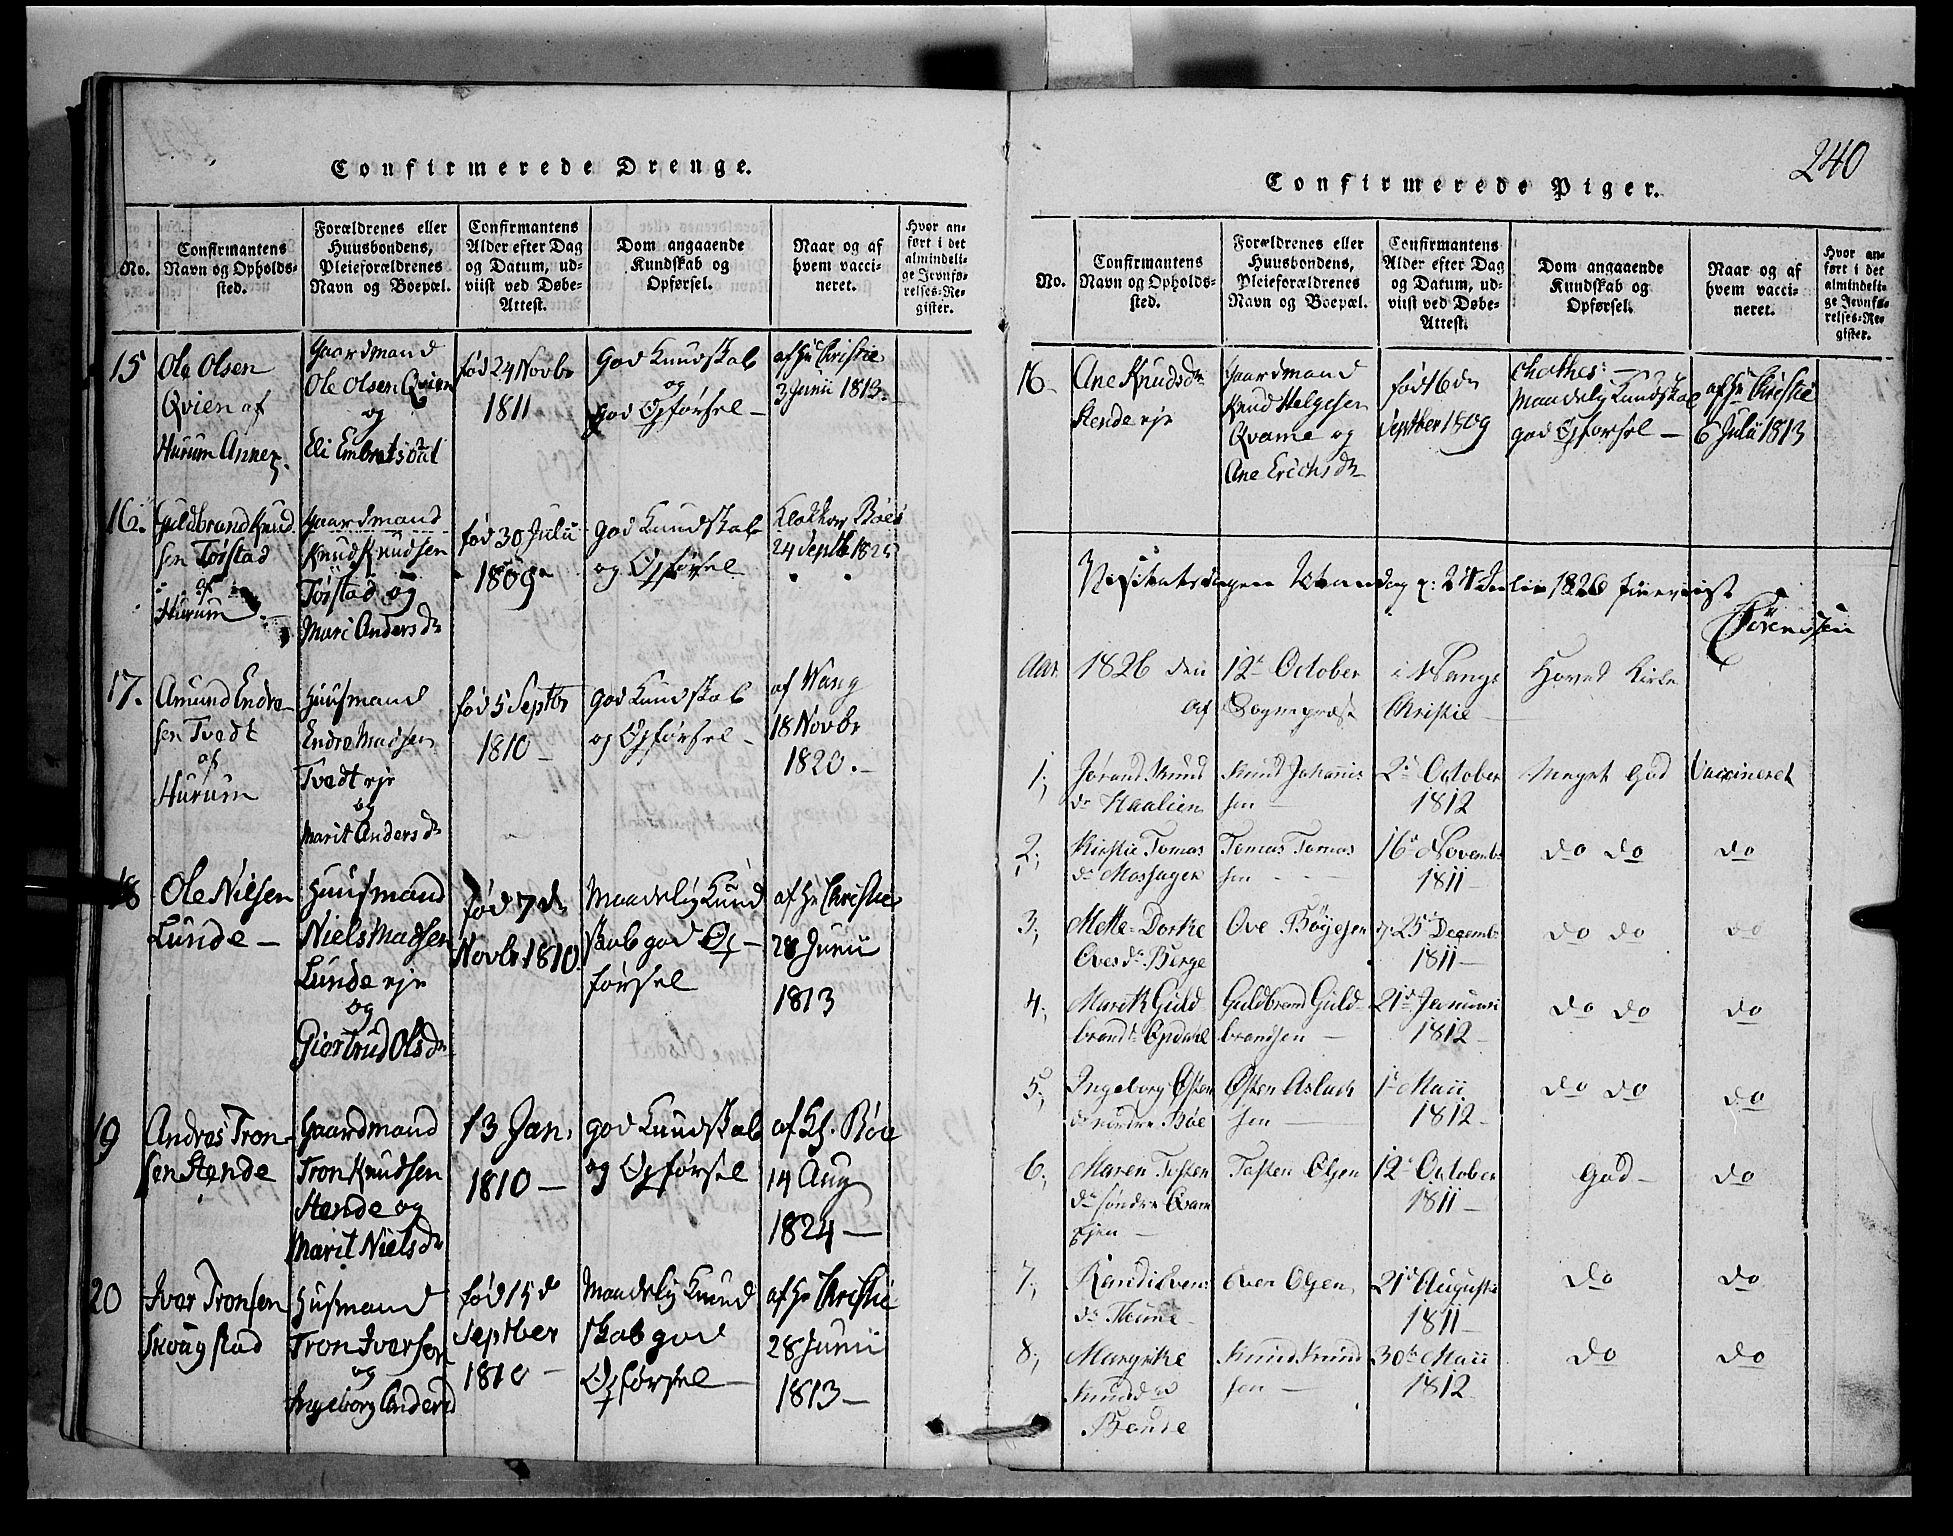 Confirmerede Drenge.
No.
Confirmantens
Navn og Opholds-
sted.
Forældrenes eller
Huusbondens,
Pleieforældrenes
Navn og Boepæl.
Confirmantens
Alder efter Dag
og Datum, ud-
viist ved Døbe-
Attest.
Dom angaaende
Kundskab og
Opførsel.
Naar og af
hvem vacci-
neret.
Hvor an-
ført i det
almindeli-
ge Jevnfø-
relses-Re-
gister.
15
Ole Olsen
Qvien af
Hurum Annex.
Gaardmand
Ole Olsen Qvien
og
Eli Embretsdat
fød 24 Novbr
1811
god Kundskab
og
god Opførsel —
af Hr Christie
3 Junii 1813.
16.
Guldbrand Knud
sen Tørstad
af
Hurum
Gaardmand
Knud Knudsen
Tørstad og
Mari Anders dr
fød 30 Julii
1809
god Kundskab
og Opførsel
Klokker Bøe
24 Septb 1825
17.
Amund Endre-
sen Tvedt
af
Hurum
Huusmand
Endre Madsen
Tvedt eje
og
Marit Anders dr
fød 5 Septbr
1810 —
god Kundskab
og Opførsel —
af Wang
18 Novbr
1820. —
18
Ole Nilsen
Lunde —
Huusmand
Niels Madsen
Lunde eje
og
Giertrud Ols dr
fød 7 de
Novbr 1810
Maadelig Kund
skab god Op-
førsel
af Hr Christie
28 Junii
1813
19
Andres Tron-
sen Stende
Gaardmand
Tron Knudsen
Stende og
Marit Niels dr
13 Jan.
1810 —
god Kundskab
og Opførsel
af Kl. Bøe
14 Aug
1824 —
20
Iver Tronsen
Skougstad
Husmand
Tron Iversen
og
Ingeborg Anders d
fød 15 d
Septber
1810 —
Maadelig Kund
skab god
Opførsel —
af Hr Christie
28 Junii
1813 —
240
Confirmerede Piger.
No.
Confirmantens
Navn og Opholds-
sted.
Forældrenes eller
Huusbondens,
Pleieforældrenes
Navn og Boepæl.
Confirmantens
Alder efter Dag
og Datum, ud-
viist ved Døbe-
Attest.
Dom angaaende
Kundskab og
Opførsel.
Naar og af
hvem vacci-
neret.
Hvor an-
ført i det
almindeli-
ge Jevnfø-
relses-Re-
gister.
16.
Ane Knuds dr
Stende eje
Gaardmand
Knud Helgesen
Qvame og
Ane Erichs dr
fød 16 de
Septber 1809
Maadelig Kundskab
god Opførsel —
af Hr Christie
6 Julii 1813
1826
Sørenssen
Aar 1826 den 12te October i Wangs Hoved Kirke
af Sognepræst Christie
1,
Jørand Knud
dr Haalien
Knud Johannis
sen —
2d October
1812
Meget God
Vaccineret
2,
Kirstie Tomas
dr Mossagen
Tomas Tomas
sen
16d Novemb
1811 —
do do
do
3,
Mette-Dorke
Ovesdr Berge
Ove Bøyesen
25d Decemb
1811 —
do do
do
4,
Marit Guld
brandsd Opdal
Guldbrand Guld-
brandsen —
21d Januari
1812
do do
do
5,
Ingeborg Østen
dr nordre Bøe
Østen Aslach
sen —
1d Maii
1812
do do
do
6,
Maren Tosten
dr søndre Qvam
ejen —
Tosten Olsen
12d October
1811 —
God —
do
7,
Randi Iver
dr Thune —
Iver Olsen
21d Augusti
1811 —
do
do
8,
Margrthe
Knudsd
Baude
Knud Knud
sen —
30te Maii
1812
do
do